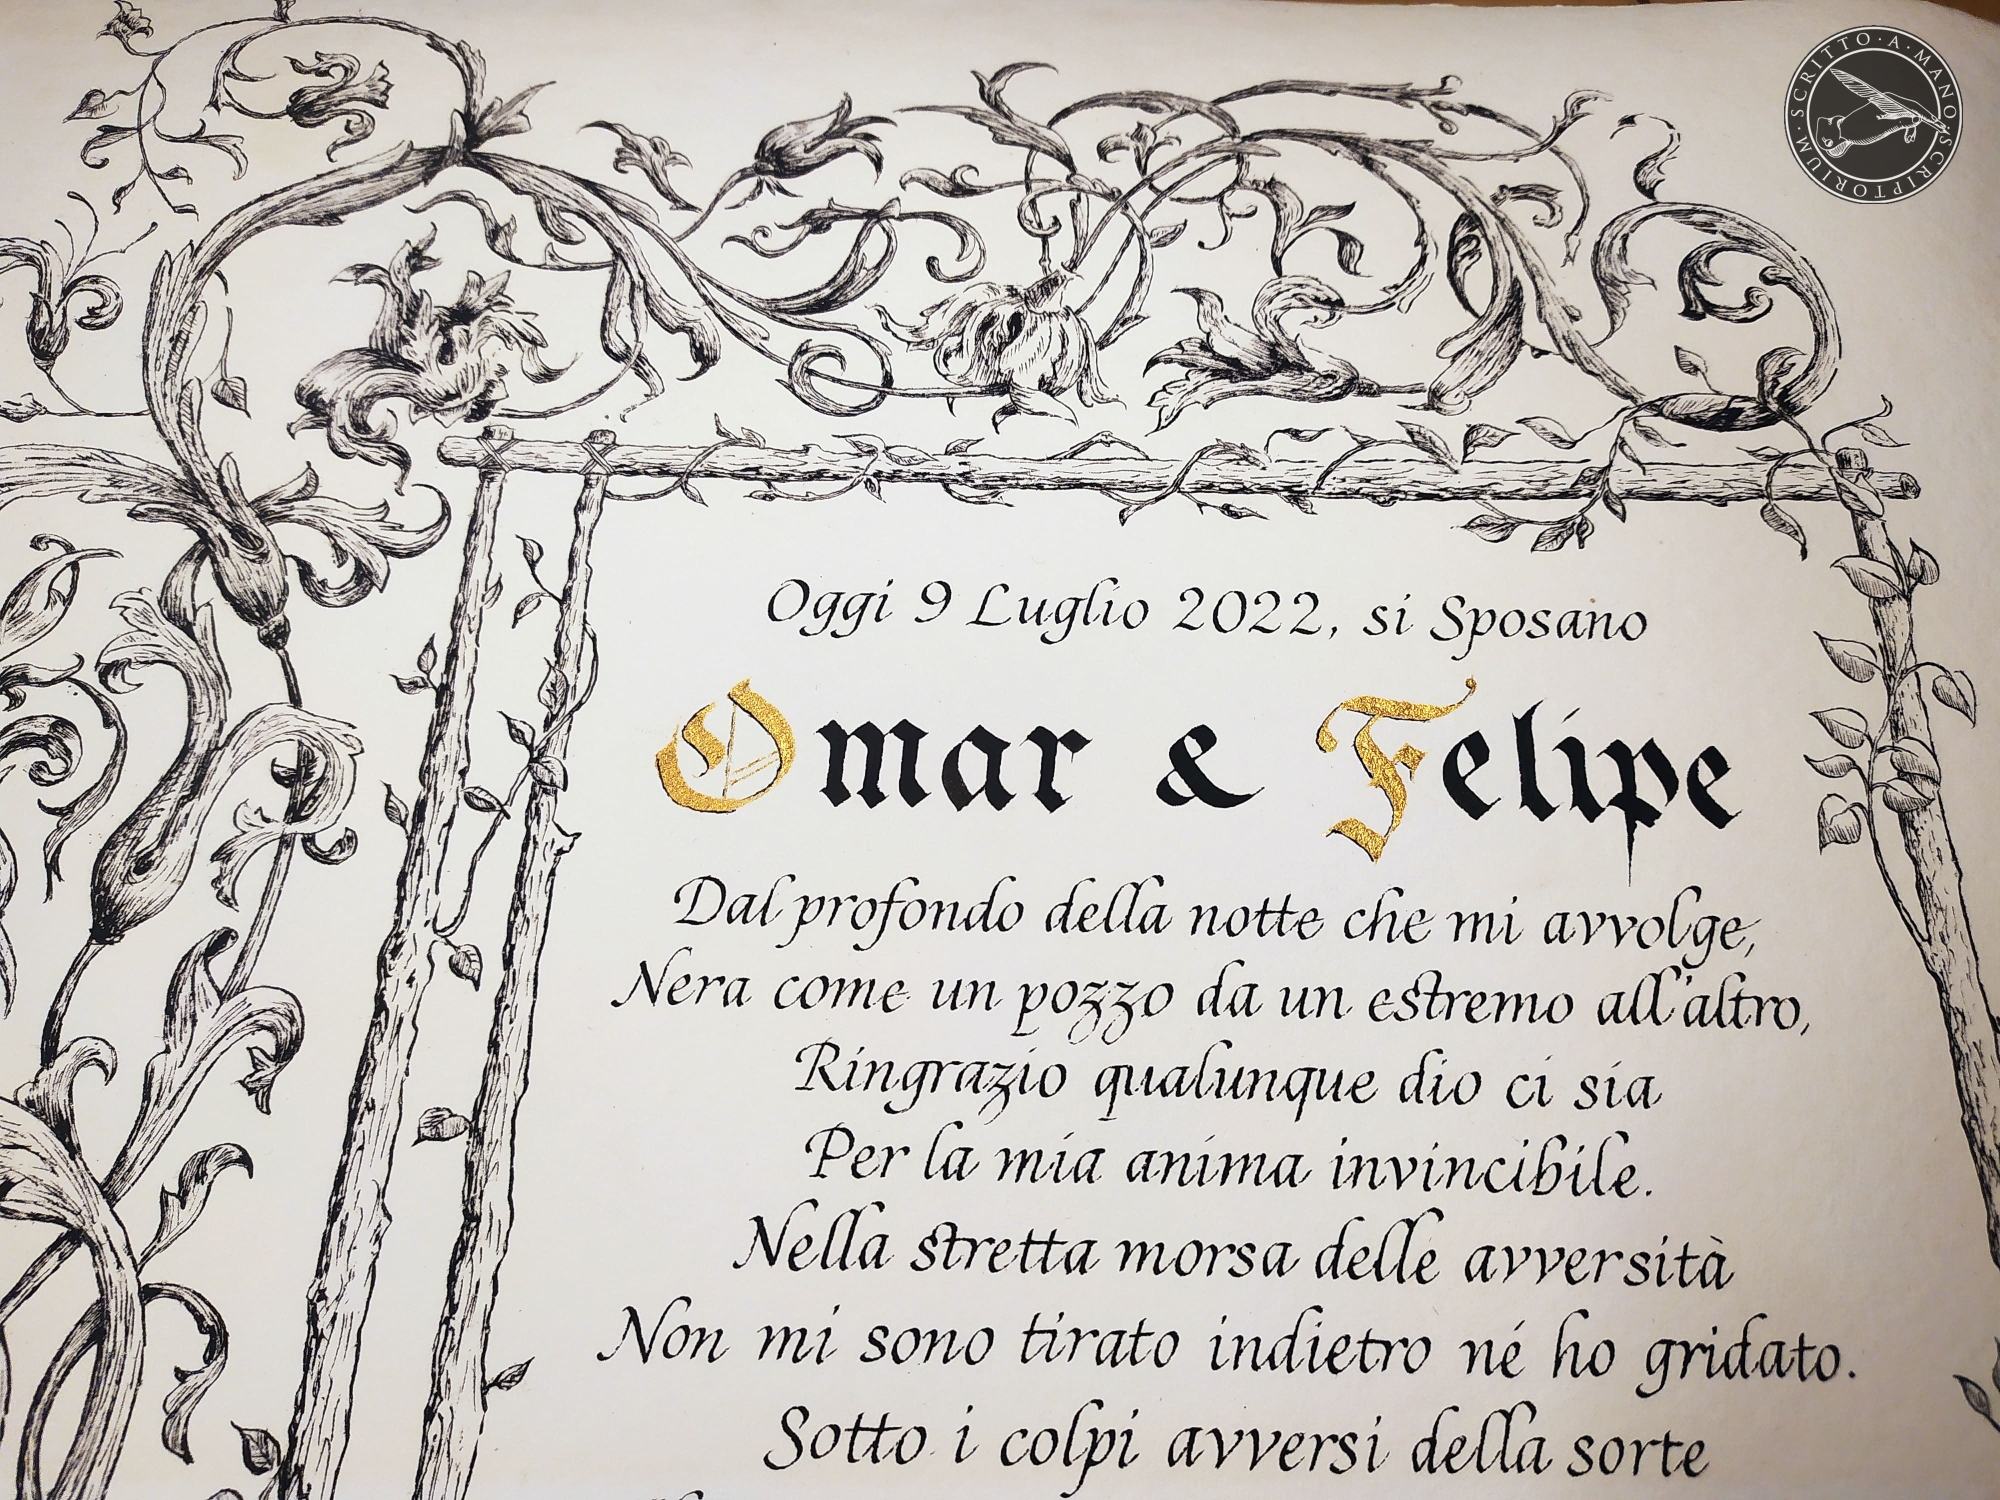 SCRITTO · A · MANO · SCRIPTORIUM ·
Oggi 9 Luglio 2022, si Sposano
Omar & Felipe
Dal profondo della notte che mi avvolge,
Nera come un pozzo da un estremo all'altro,
Ringrazio qualunque dio ci sia
Per la mia anima invincibile.
Nella stretta morsa delle avversità
Non mi sono tirato indietro né ho gridato.
Sotto i colpi avversi della sorte